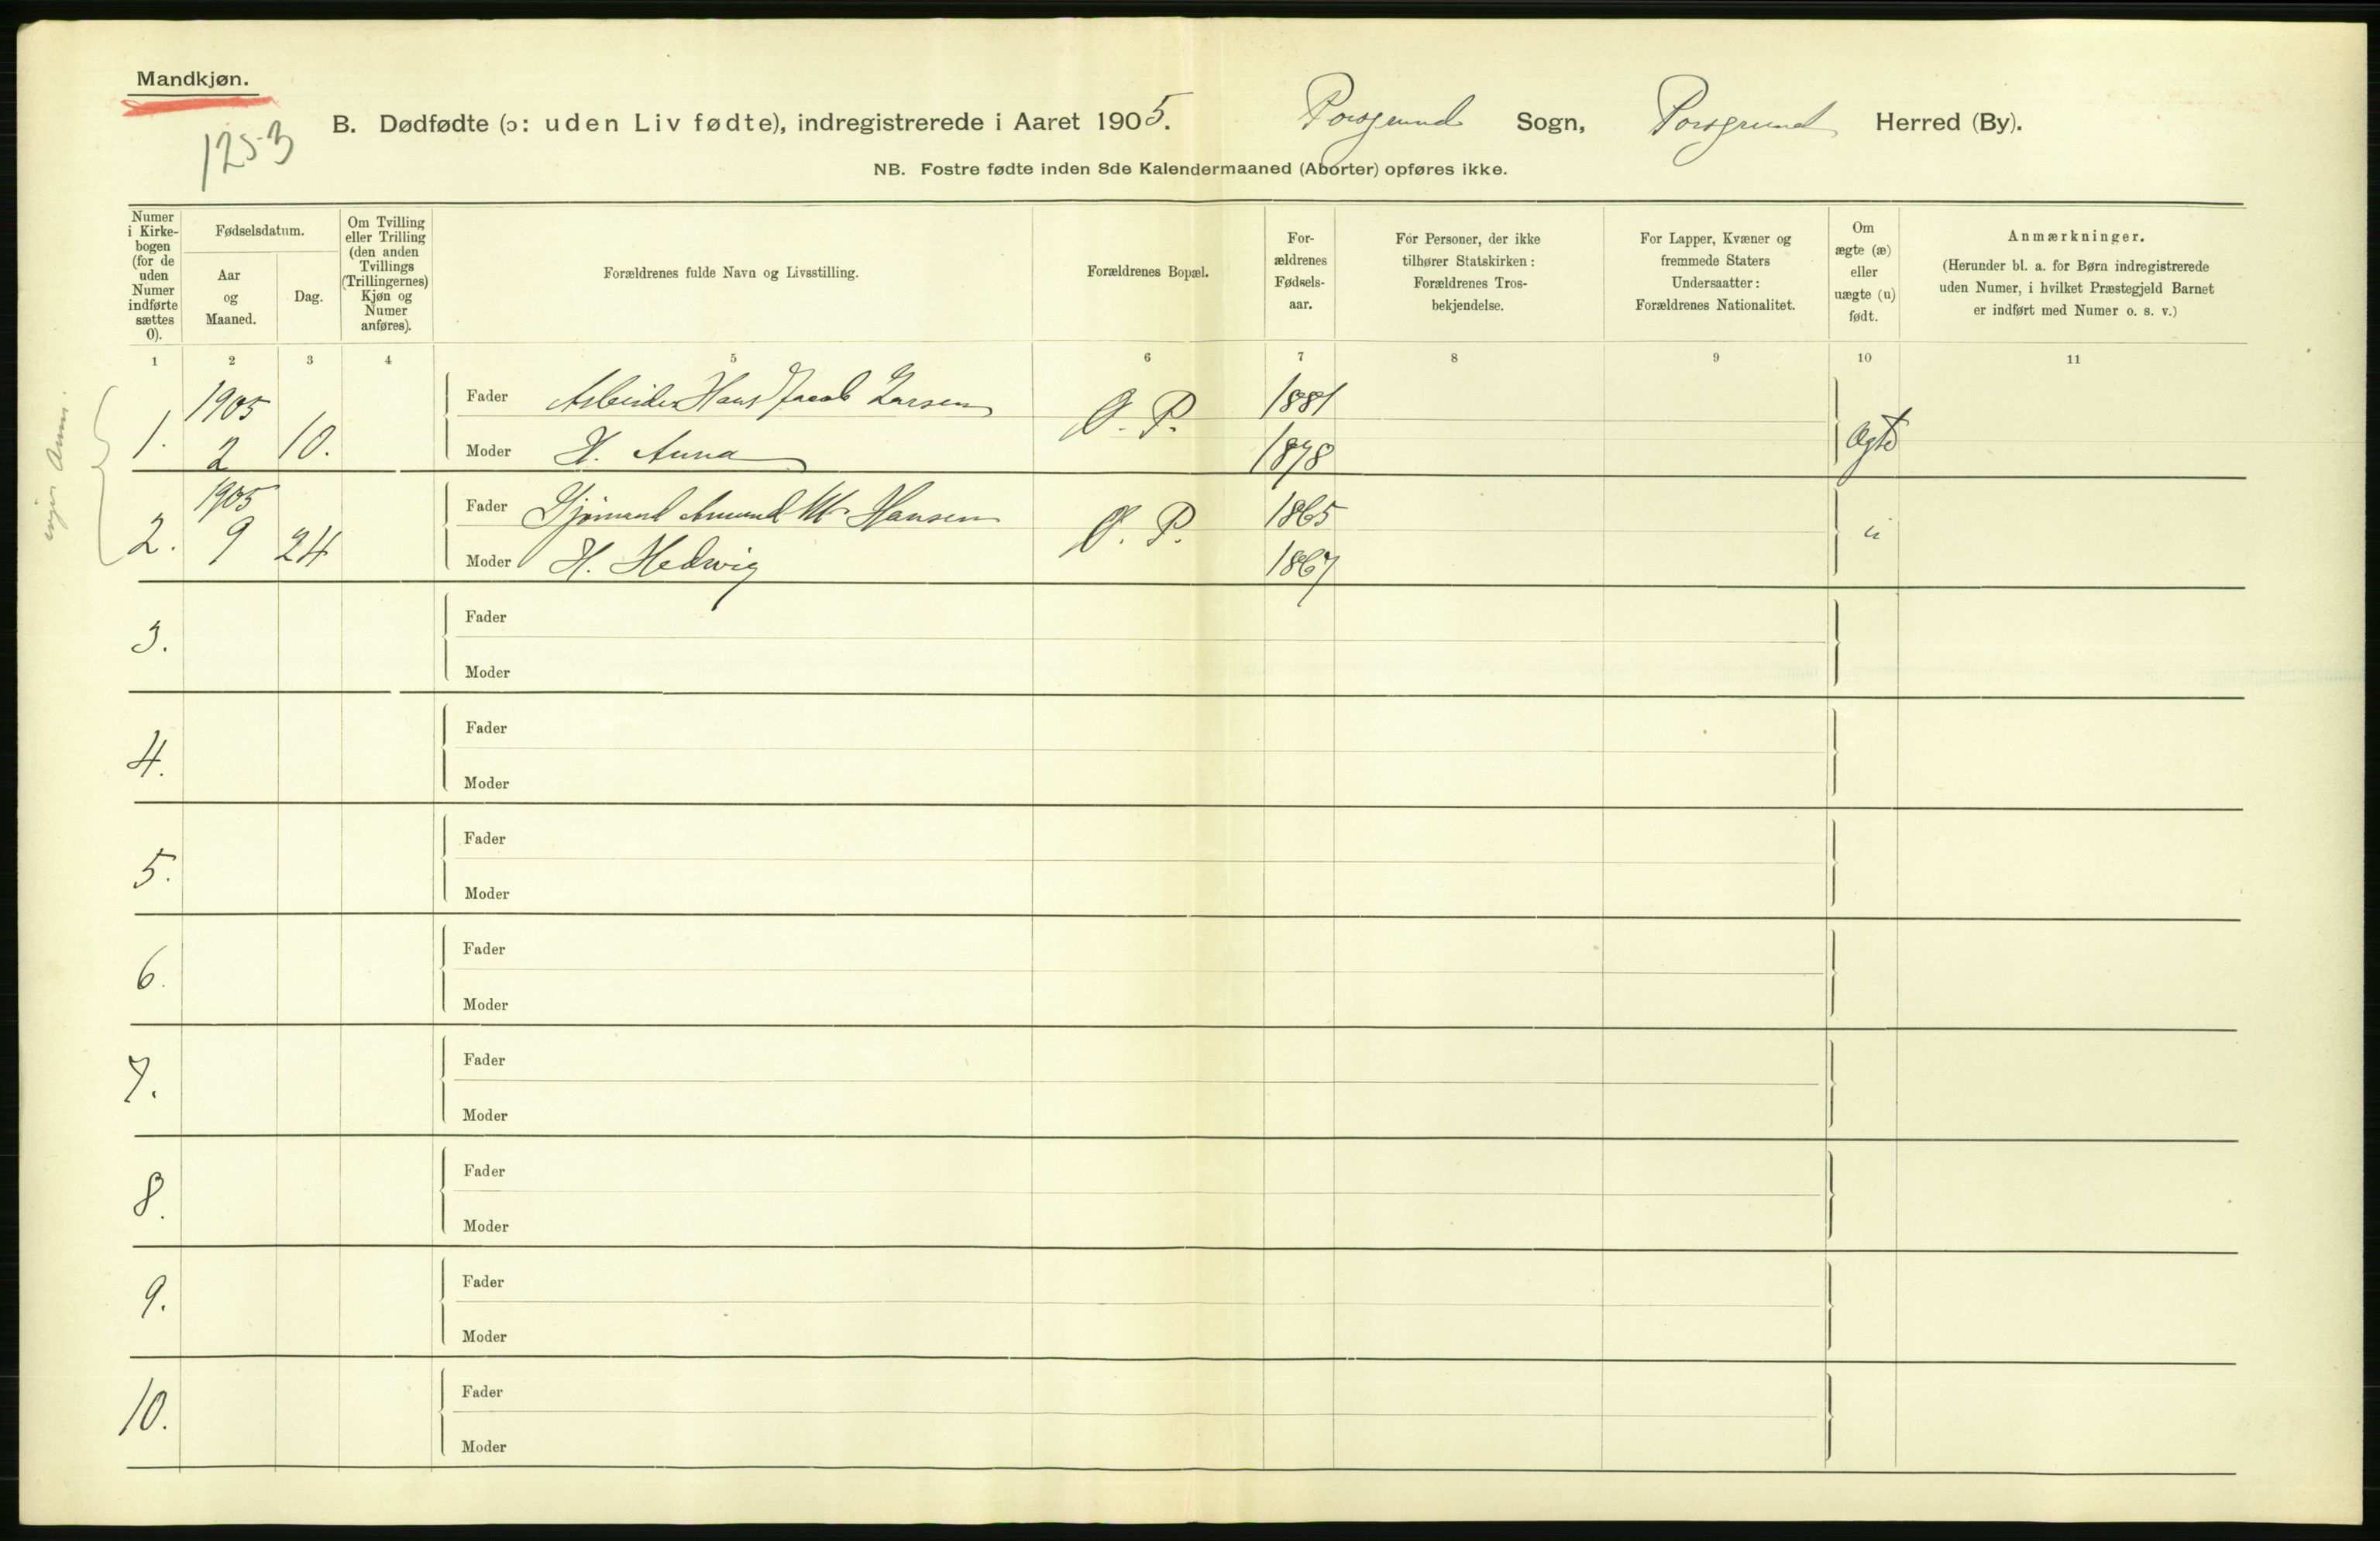 Mandkjøn.
1253
B. Dødfødte (ɔ: uden Liv fødte), indregistrerede i Aaret 1905. Porsgrund Sogn, Porsgrund Herred (By).
NB. Fostre fødte inden 8de Kalendermaaned (Aborter) opføres ikke.
Numer i Kirke-
bogen
(for de
uden
Numer
indførte
sættes
0).
Fødselsdatum.
Aar
og
Maaned.
Dag.
Om Tvilling
eller Trilling
(den anden
Tvillings
(Trillingernes)
Kjøn og
Numer
anføres).
Forældrenes fulde Navn og Livsstilling.
Forældrenes Bopæl.
For-
ældrenes
Fødsels-
aar.
For Personer, der ikke
tilhører Statskirken:
Forældrenes Tros-
bekjendelse.
For Lapper, Kvæner og
fremmede Staters
Undersaatter:
Forældrenes Nationalitet.
Om
ægte (æ)
eller
uægte (u)
født.
Anmærkninger.
(Herunder bl. a. for Børn indregistrerede
uden Numer, i hvilket Præstegjeld Barnet
er indført med Numer o. s. v.)
1 2 3 4 5 6 7 8 9 10 11
ingen Anm.
1. 1905 2 10. Fader Arbeider Hans Jacob Larsen Ø. P. 1881 Ægte
Moder H. Anna 1878
2. 1905 9 24 Fader Sjømand Amund M. Hansen Ø. P. 1865 "
Moder H. Hedwig 1867
3. Fader
Moder
4. Fader
Moder
5. Fader
Moder
6. Fader
Moder
7. Fader
Moder
8. Fader
Moder
9. Fader
Moder
10. Fader
Moder